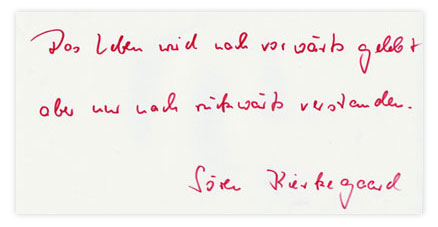 Das Leben wird nach vorwärts gelebt
aber nur nach rückwärts verstanden.
Sören Kierkegaard